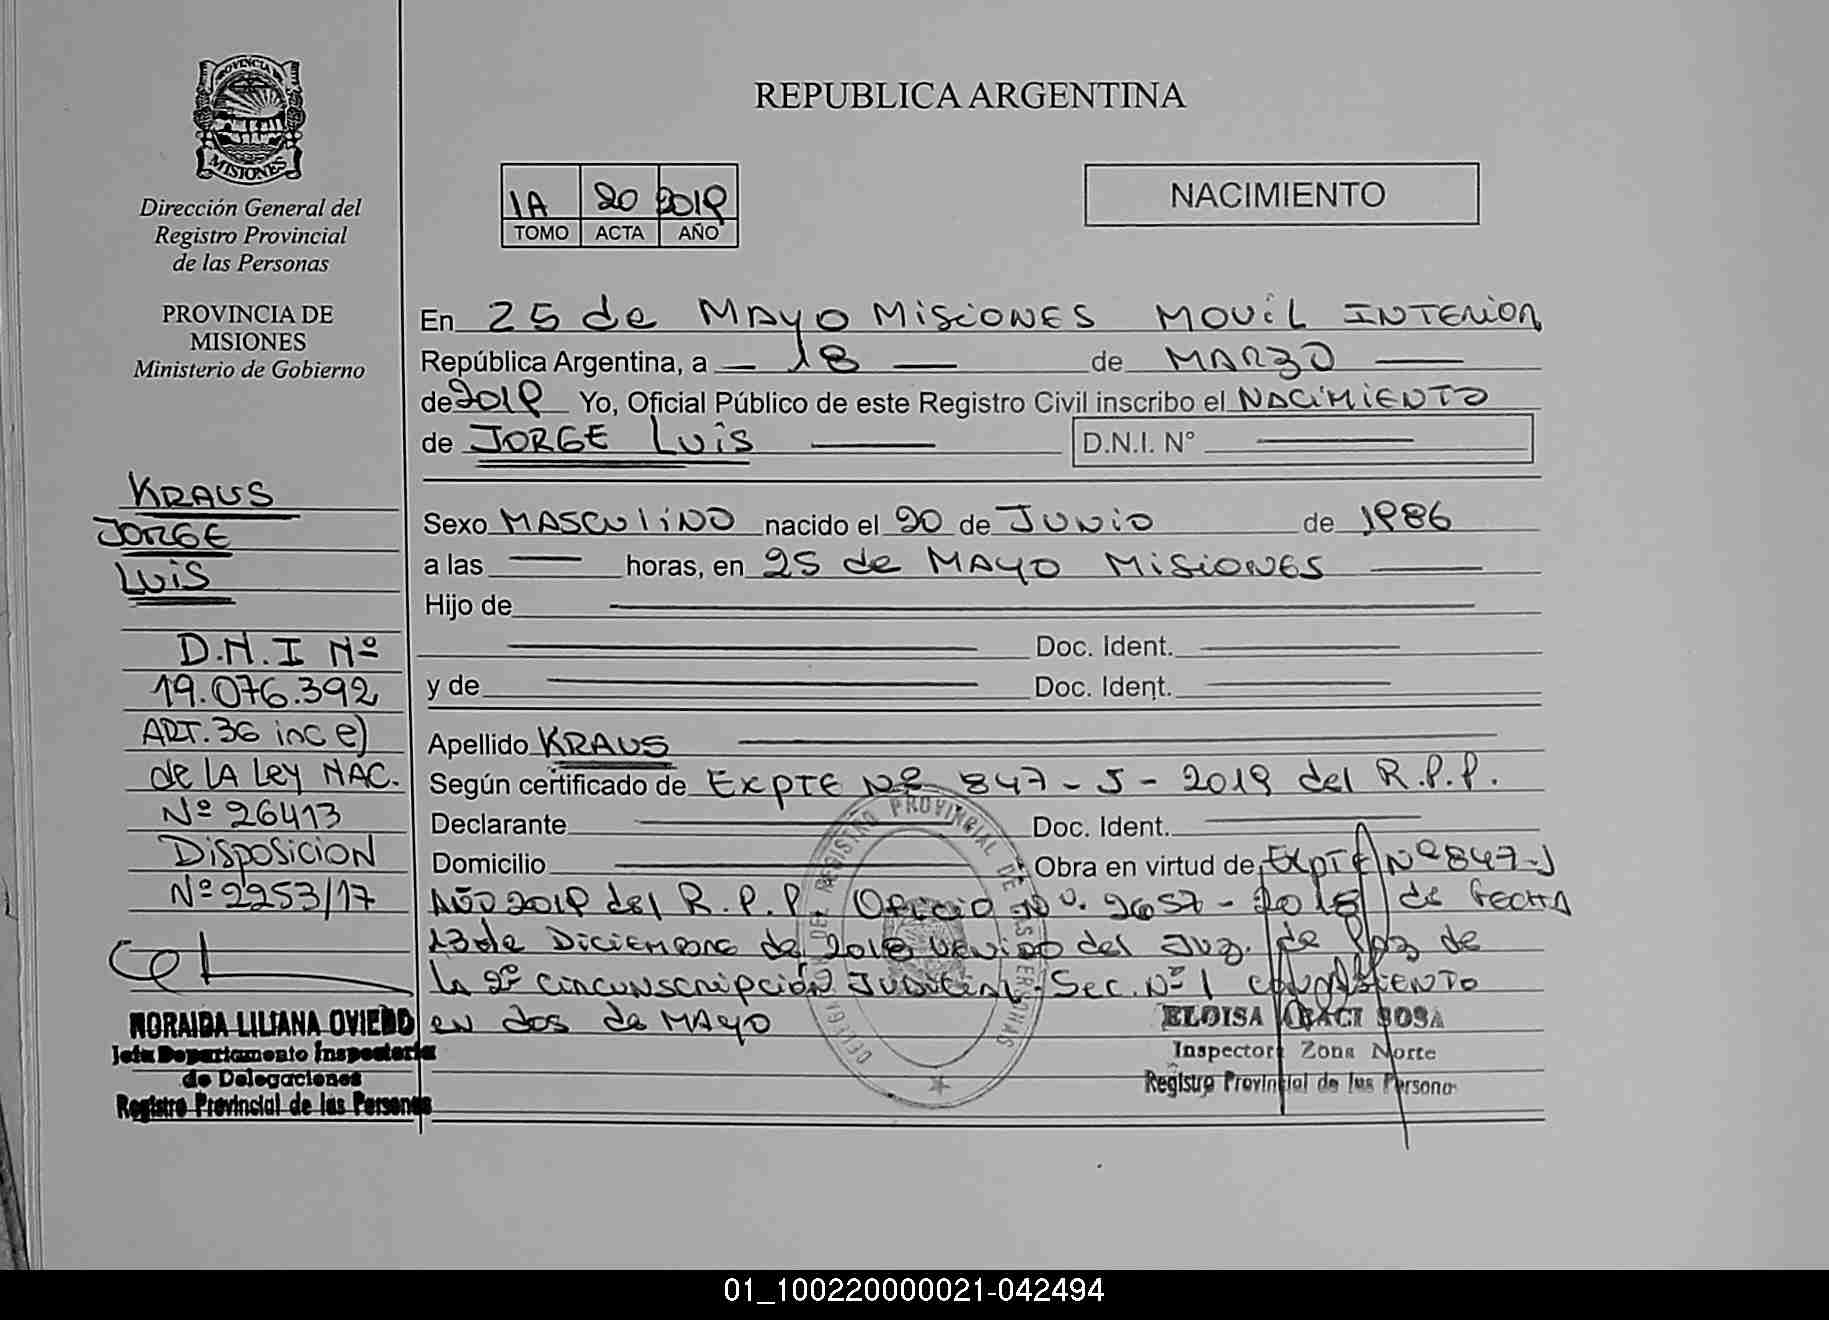 PROVINCIA DE
MISIONES
Dirección General del
Registro Provincial
de las Personas
PROVINCIA DE
MISIONES
Ministerio de Gobierno
KRAUS
JORGE
LUIS
D.N.I Nº
19.076.392
ART. 36 inc e)
de LA Ley NAC.
Nº 26413
DISPOSICION
Nº 2253/17
NORAIDA LILIANA OVIEDO
Jefa Departamento Inspectoria
de Delegaciones
Registro Provincial de las Personas
REPUBLICA ARGENTINA
1A 20 2019
TOMO ACTA AÑO
NACIMIENTO
En 25 de MAYO MISIONES MOVIL INTERIOR
República Argentina, a 18 de MARZO
de 2019 Yo, Oficial Público de este Registro Civil inscribo el NACIMIENTO
de JORGE LUIS D.N.I. N°
Sexo MASCULINO nacido el 20 de JUNIO de 1986
a las horas, en 25 de MAYO MISIONES
Hijo de
Doc. Ident.
y de Doc. Ident.
Apellido KRAUS
Según certificado de EXPTE Nº 847 - J - 2019 del R.P.P.
Declarante Doc. Ident.
Domicilio Obra en virtud de EXPTE Nº 847-J
AÑO 2019 del R.P.P. Oficio Nº. 2657 - 2018 de FECHA
13 de Diciembre de 2018 del Juz. de Paz de
LA 2º Circunscripción JUDICIAL. Sec. Nº 1
en dos de MAYO
ELOISA BOSA
Inspector Zona Norte
Registro Provincial de las Personas
REGISTRO PROVINCIAL DE LAS PERSONAS
01_100220000021-042494